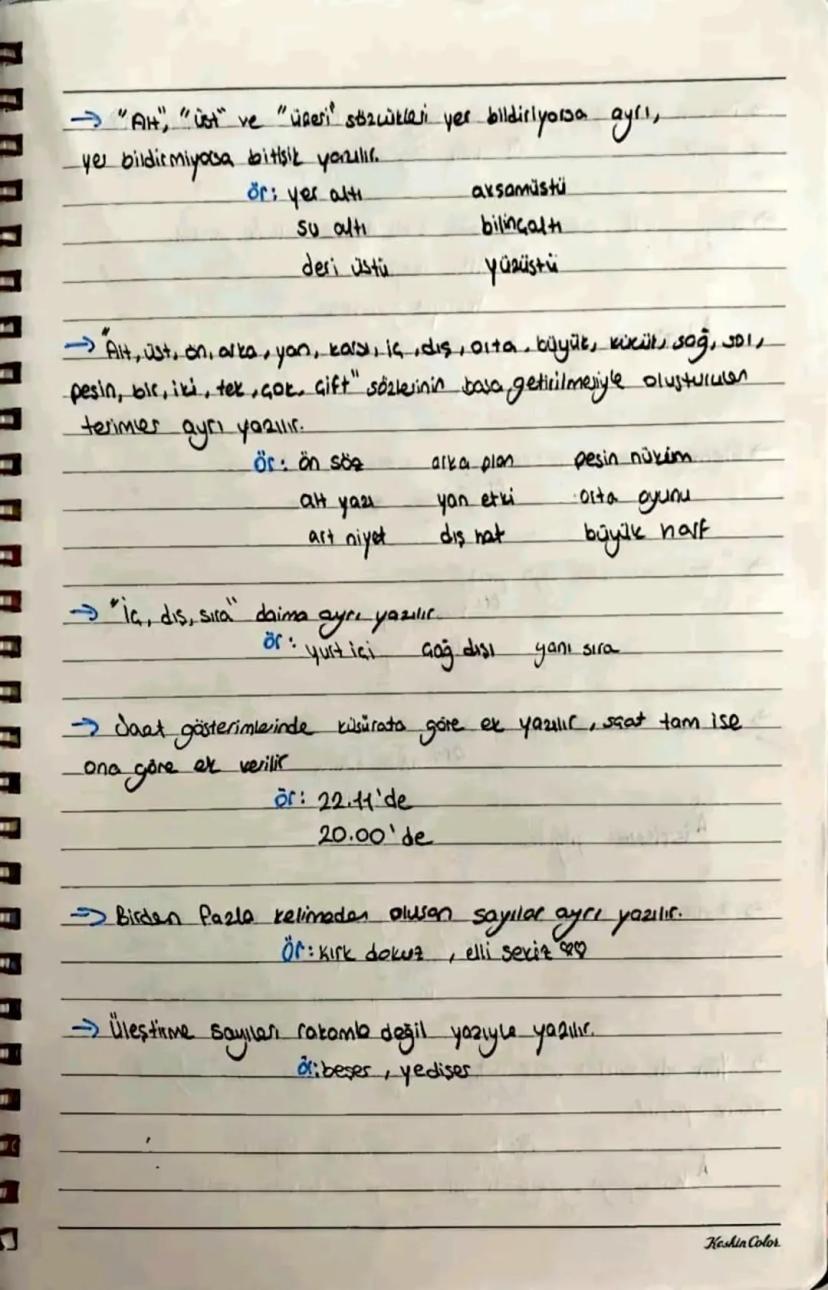 → "Alt", "üst" ve "üzeri" sözcükleri yer bildiriyorsa ayrı,
yer bildirmiyorsa bitişik yazılır.
ör: yer altı akşamüstü
su altı bilinçaltı
deri üstü yüzüstü
→ "Alt, üst, ön, arka, yan, karşı, iç, dış, orta, büyük, küçük, sağ, sol,
peşin, bir, iki, tek, çok, çift" sözlerinin başa getirilmesiyle oluşturulan
terimler ayrı yazılır.
ör: ön söz arka plan peşin hüküm
alt yazı yan etki orta oyunu
art niyet dış hat büyük harf
→ "İç, dış, sıra" daima ayrı yazılır.
ör: yurt içi çağ dışı yanı sıra
→ Saat gösterimlerinde küsürata göre ek yazılır, saat tam ise
ona göre ek verilir
ör: 22.11'de
20.00'de
→ Birden fazla kelimeden oluşan sayılar ayrı yazılır.
Ör: kırk dokuz, elli sekiz ♡♡
→ Üleştirme sayıları rakamla değil yazıyla yazılır.
ör: beşer, yedişer
Keskin Color